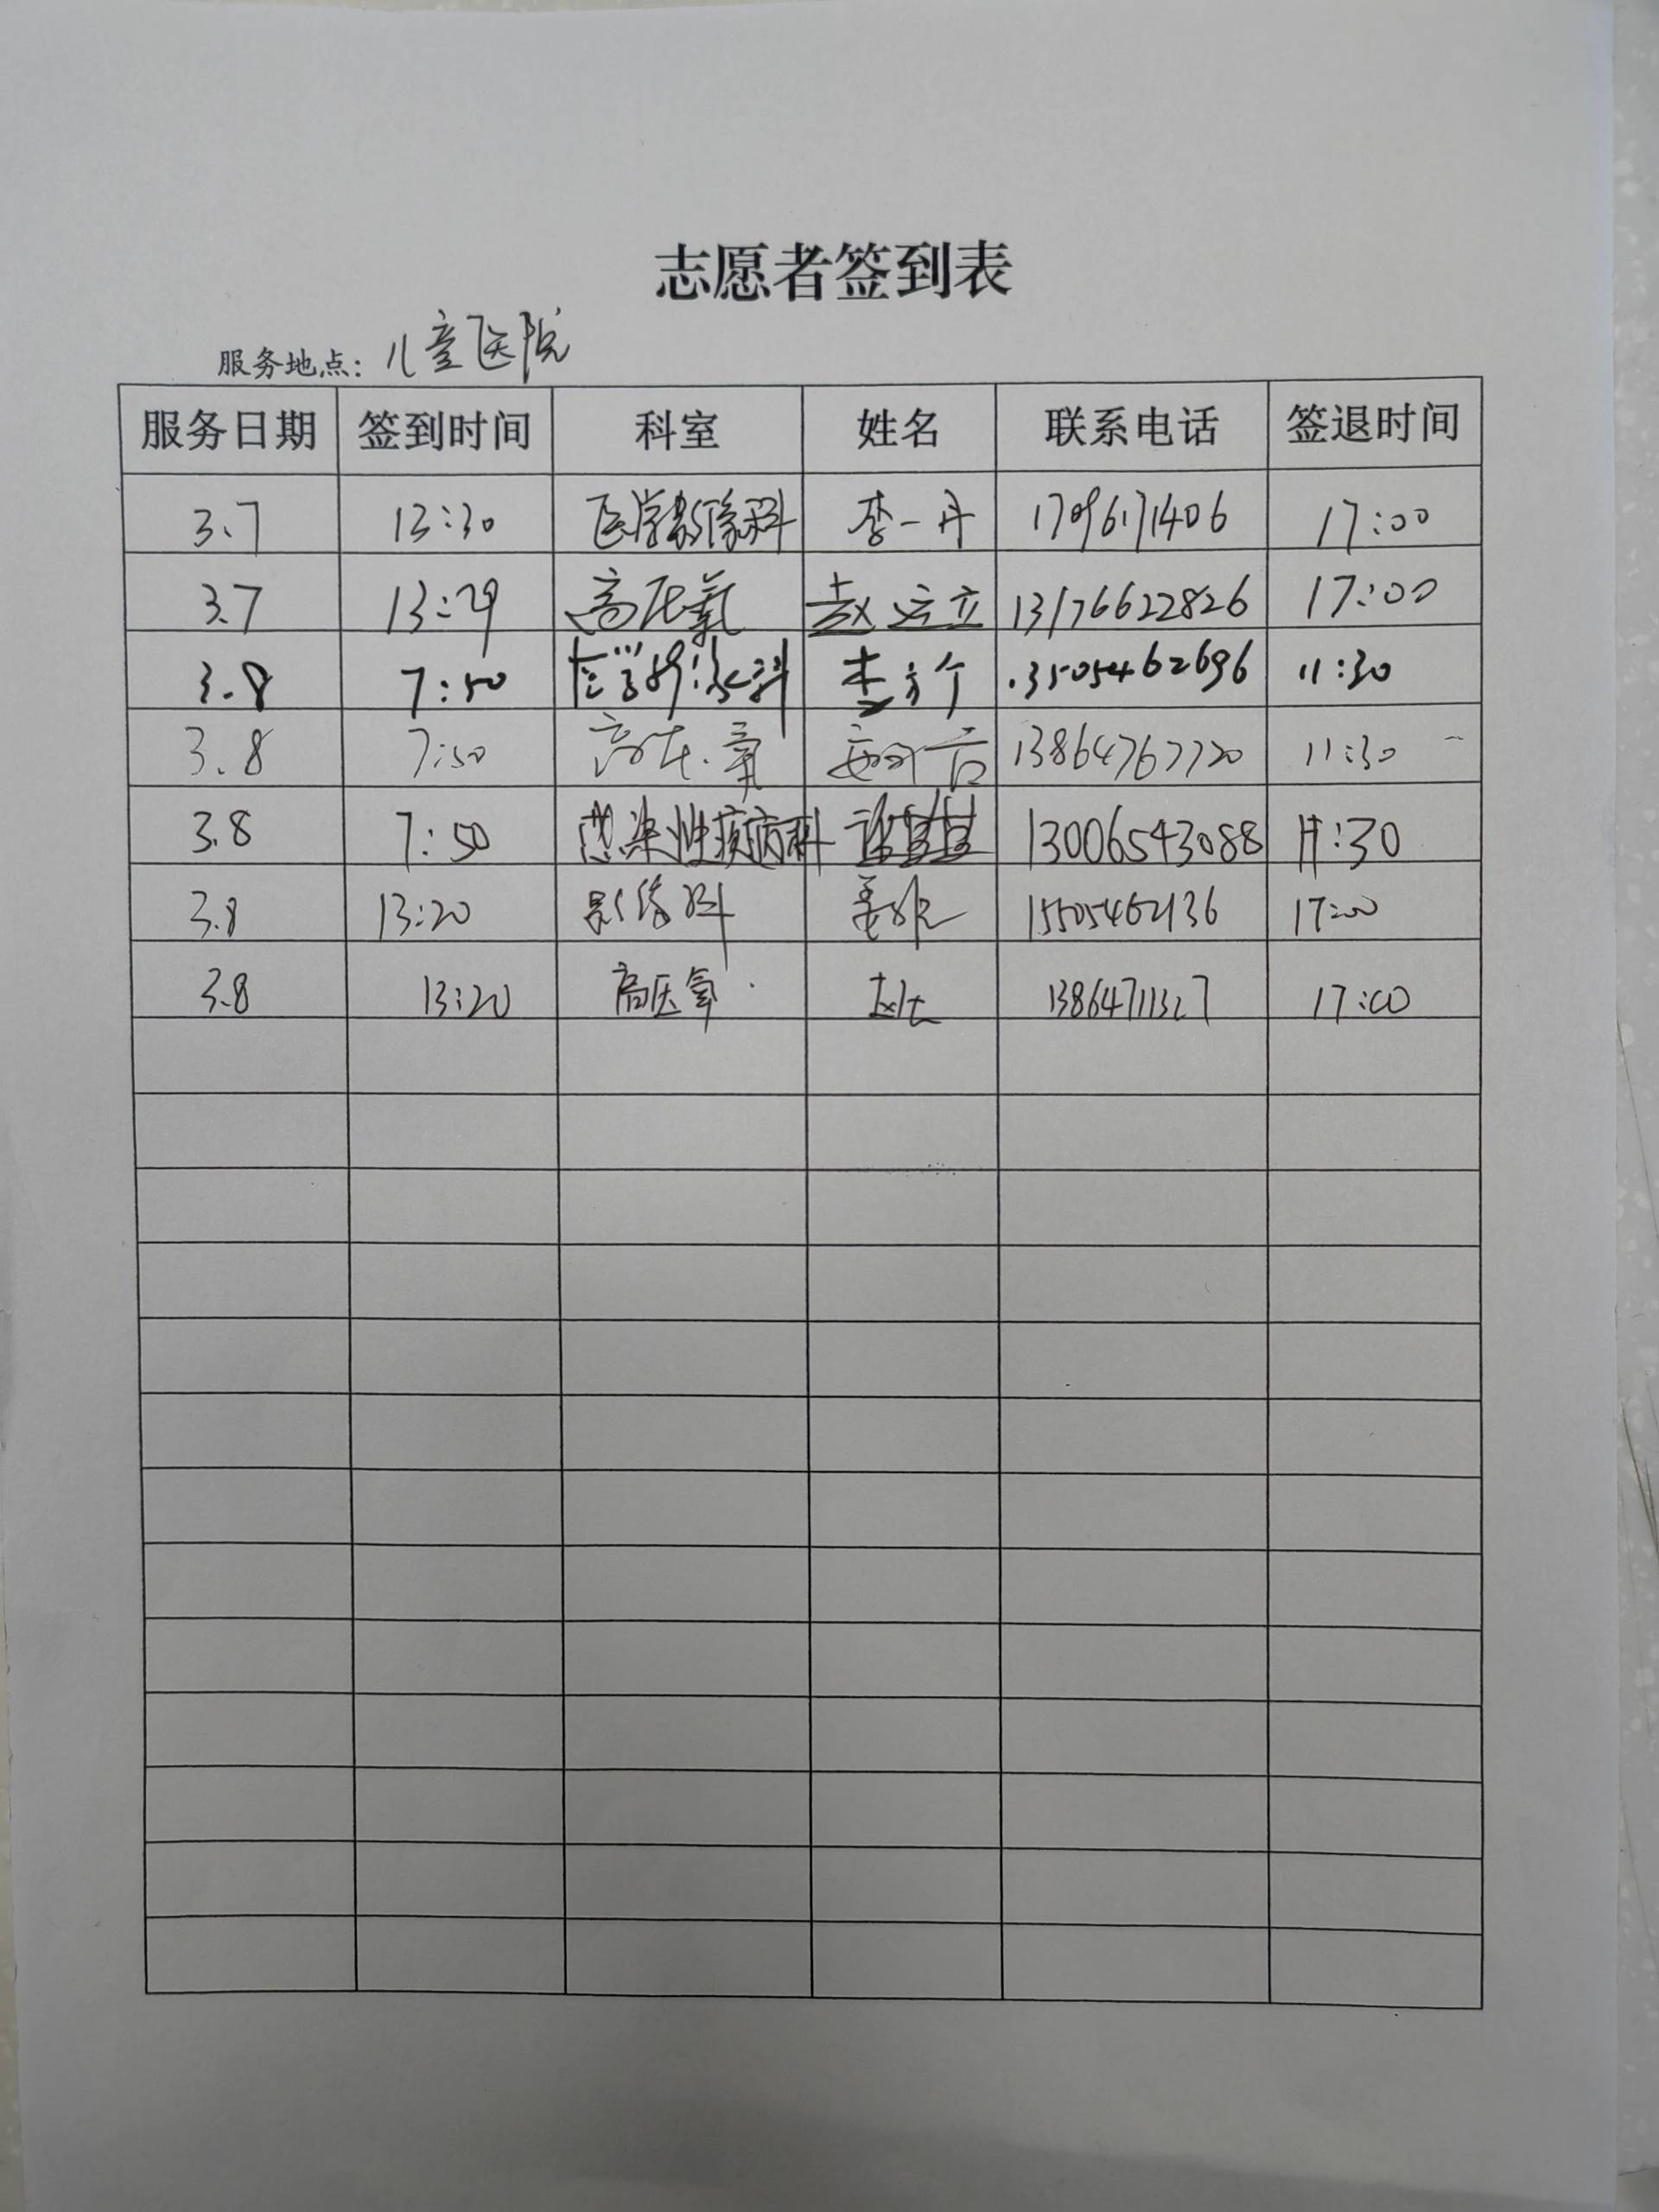 志愿者签到表
服务地点: 儿童医院
服务日期 签到时间 科室 姓名 联系电话 签退时间
3.7 13:30 医学影像科 李一丹 17:00
3.7 13:29 高压氧 赵 立 13176622826 17:00
3.8 7:50 医学影像科 李 3505462696 11:30
3.8 7:50 高压氧 13864767720 11:30
3.8 7:50 感染性疾病科 13006543088 11:30
3.8 13:20 影像科 姜 15505462136 17:00
3.8 13:20 高压氧 赵 17:00